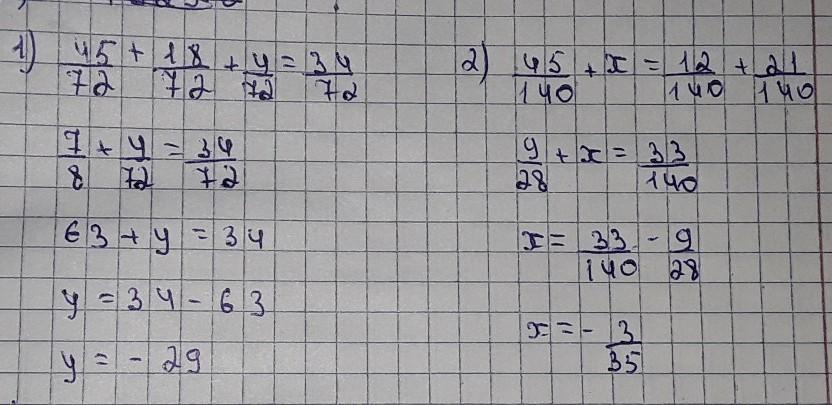 1) 45/72 + 18/72 + y/72 = 34/72
7/8 + y/72 = 34/72
63 + y = 34
y = 34 - 63
y = - 29
2) 45/140 + x = 12/140 + 21/140
9/28 + x = 33/140
x = 33/140 - 9/28
x = - 3/35